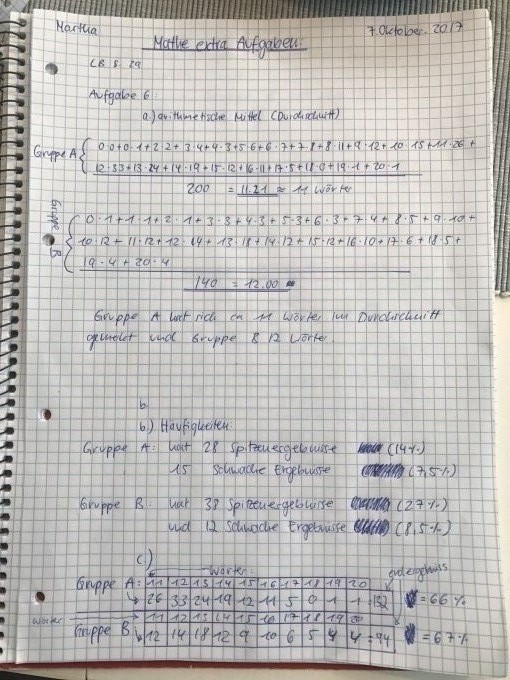 Martha 7. Oktober. 2017
Mathe extra Aufgaben:
LB S. 29
Aufgabe 6:
a.) arithmetische Mittel (Durchschnitt)
Gruppe A
0·0+0·1+2·2+3·4+4·3+5·6+6·7+7·8+8·11+9·12+10·15+11·26+
12·33+13·24+14·19+15·12+16·11+17·5+18·0+19·1+20·1
200 = 11.21 ≈ 11 Wörter
Gruppe B
0·1+1·1+2·1+3·3+4·3+5·3+6·3+7·4+8·5+9·10+
10·12+11·12+12·14+13·18+14·12+15·12+16·10+17·6+18·5+
19·4+20·4
140 = 12.00
Gruppe A hat sich ca 11 Wörter im Durchschnitt
gemerkt und Gruppe B 12 Wörter.
b
b) Häufigkeiten:
Gruppe A: hat 28 Spitzenergebnisse (14%)
15 Schwache Ergebnisse (7,5%)
Gruppe B: hat 38 Spitzenergebnisse (27%)
und 12 Schwache Ergebnisse (8,5%)
c)
Wörter:
Gruppe A: 11 12 13 14 15 16 17 18 19 20
26 33 24 19 12 11 5 0 1 1 =132 = 66%
Wörter 11 12 13 14 15 16 17 18 19 20
Gruppe B 12 14 18 12 9 10 6 5 4 4 = 94 = 67%